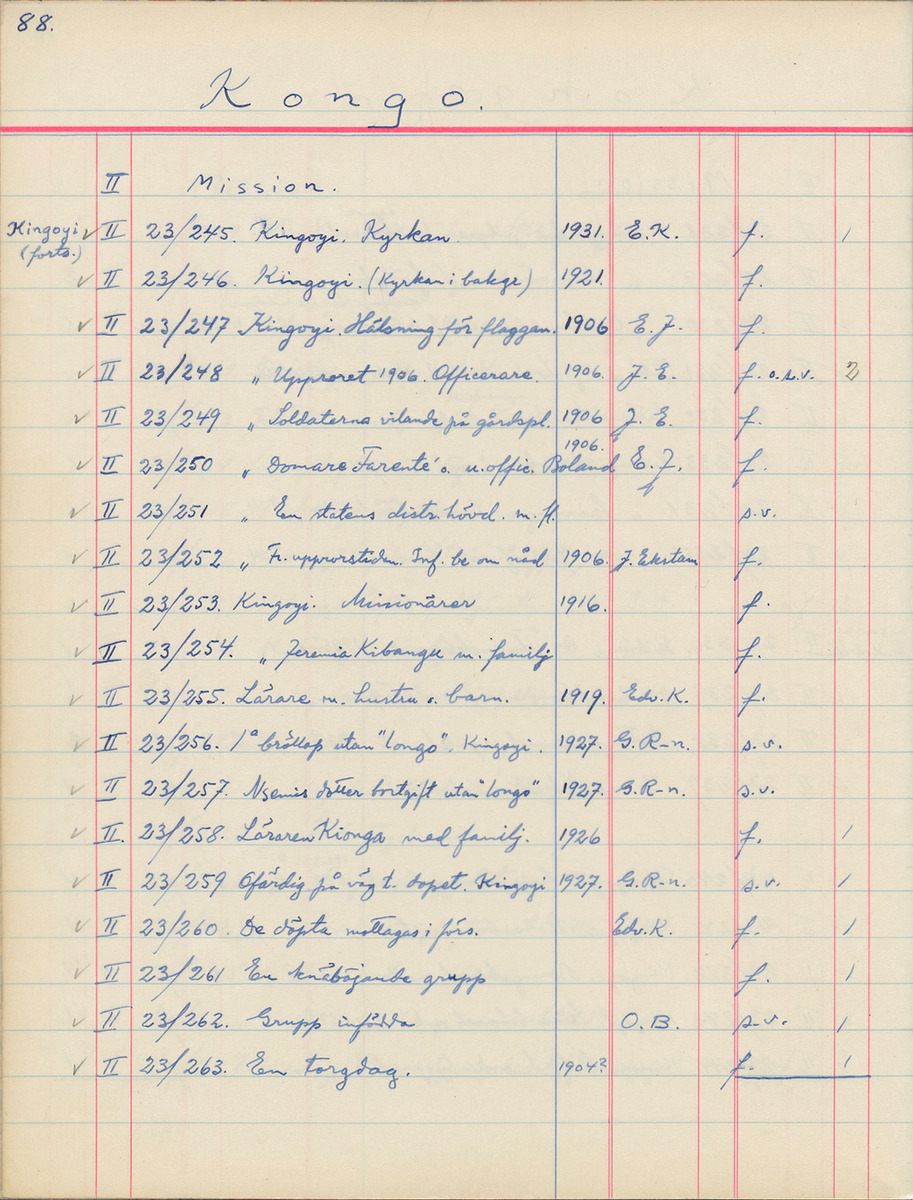 88.
Kongo.
II Mission.
Kingoyi ✓ II 23/245. Kingoyi. Kyrkan. 1931. E.K. f. 1
(forts.)
✓ II 23/246. Kingoyi. (Kyrkan i bakgr) 1921. f.
✓ II 23/247 Kingoyi. Hälsning för flaggan. 1906 E.J. f.
✓ II 23/248 „ Upproret 1906. Officerare. 1906. J.E. f. o. s.v. 2
✓ II 23/249 „ Soldaterna vilande på gårdspl. 1906 J.E. f.
1906.
✓ II 23/250 „ Domare Farenté o. u.offic. Boland E.J. f.
✓ II 23/251 „ En statens distr. hövd. m. fl. s.v.
✓ II 23/252 „ Fr. upprorstiden. Inf. be om nåd 1906. J. Ekstam f.
✓ II 23/253. Kingoyi. Missionärer 1916. f.
✓ II 23/254. „ Jeremia Kibangu m. familj f.
✓ II 23/255. Lärare m. hustru o. barn. 1919. Edv. K. f.
✓ II 23/256. 1a bröllop utan "longo". Kingoyi. 1927. G.R-n. s.v.
✓ II 23/257. dotter bortgift utan "longo" 1927. G.R-n. s.v.
✓ II. 23/258. Läraren Kionga med familj. 1926 f. 1
✓ II 23/259 Ofärdig på väg t. dopet. Kingoyi 1927. G.R-n. s.v. 1
✓ II 23/260. De döpta mottagas i förs. Edv. K. f. 1
✓ II 23/261 En knäböjande grupp f. 1
✓ II 23/262. Grupp infödda O.B. s.v. 1
✓ II 23/263. En torgdag. 1904? f. 1